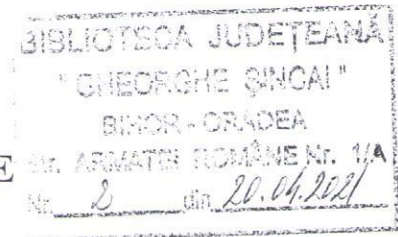 BIBLIOTECA JUDEȚEANĂ
"GHEORGHE ȘINCAI"
BIHOR - ORADEA
E Str. ARMATEI ROMÂNE Nr. 1/A
Nr. 2 din 20.04.2021